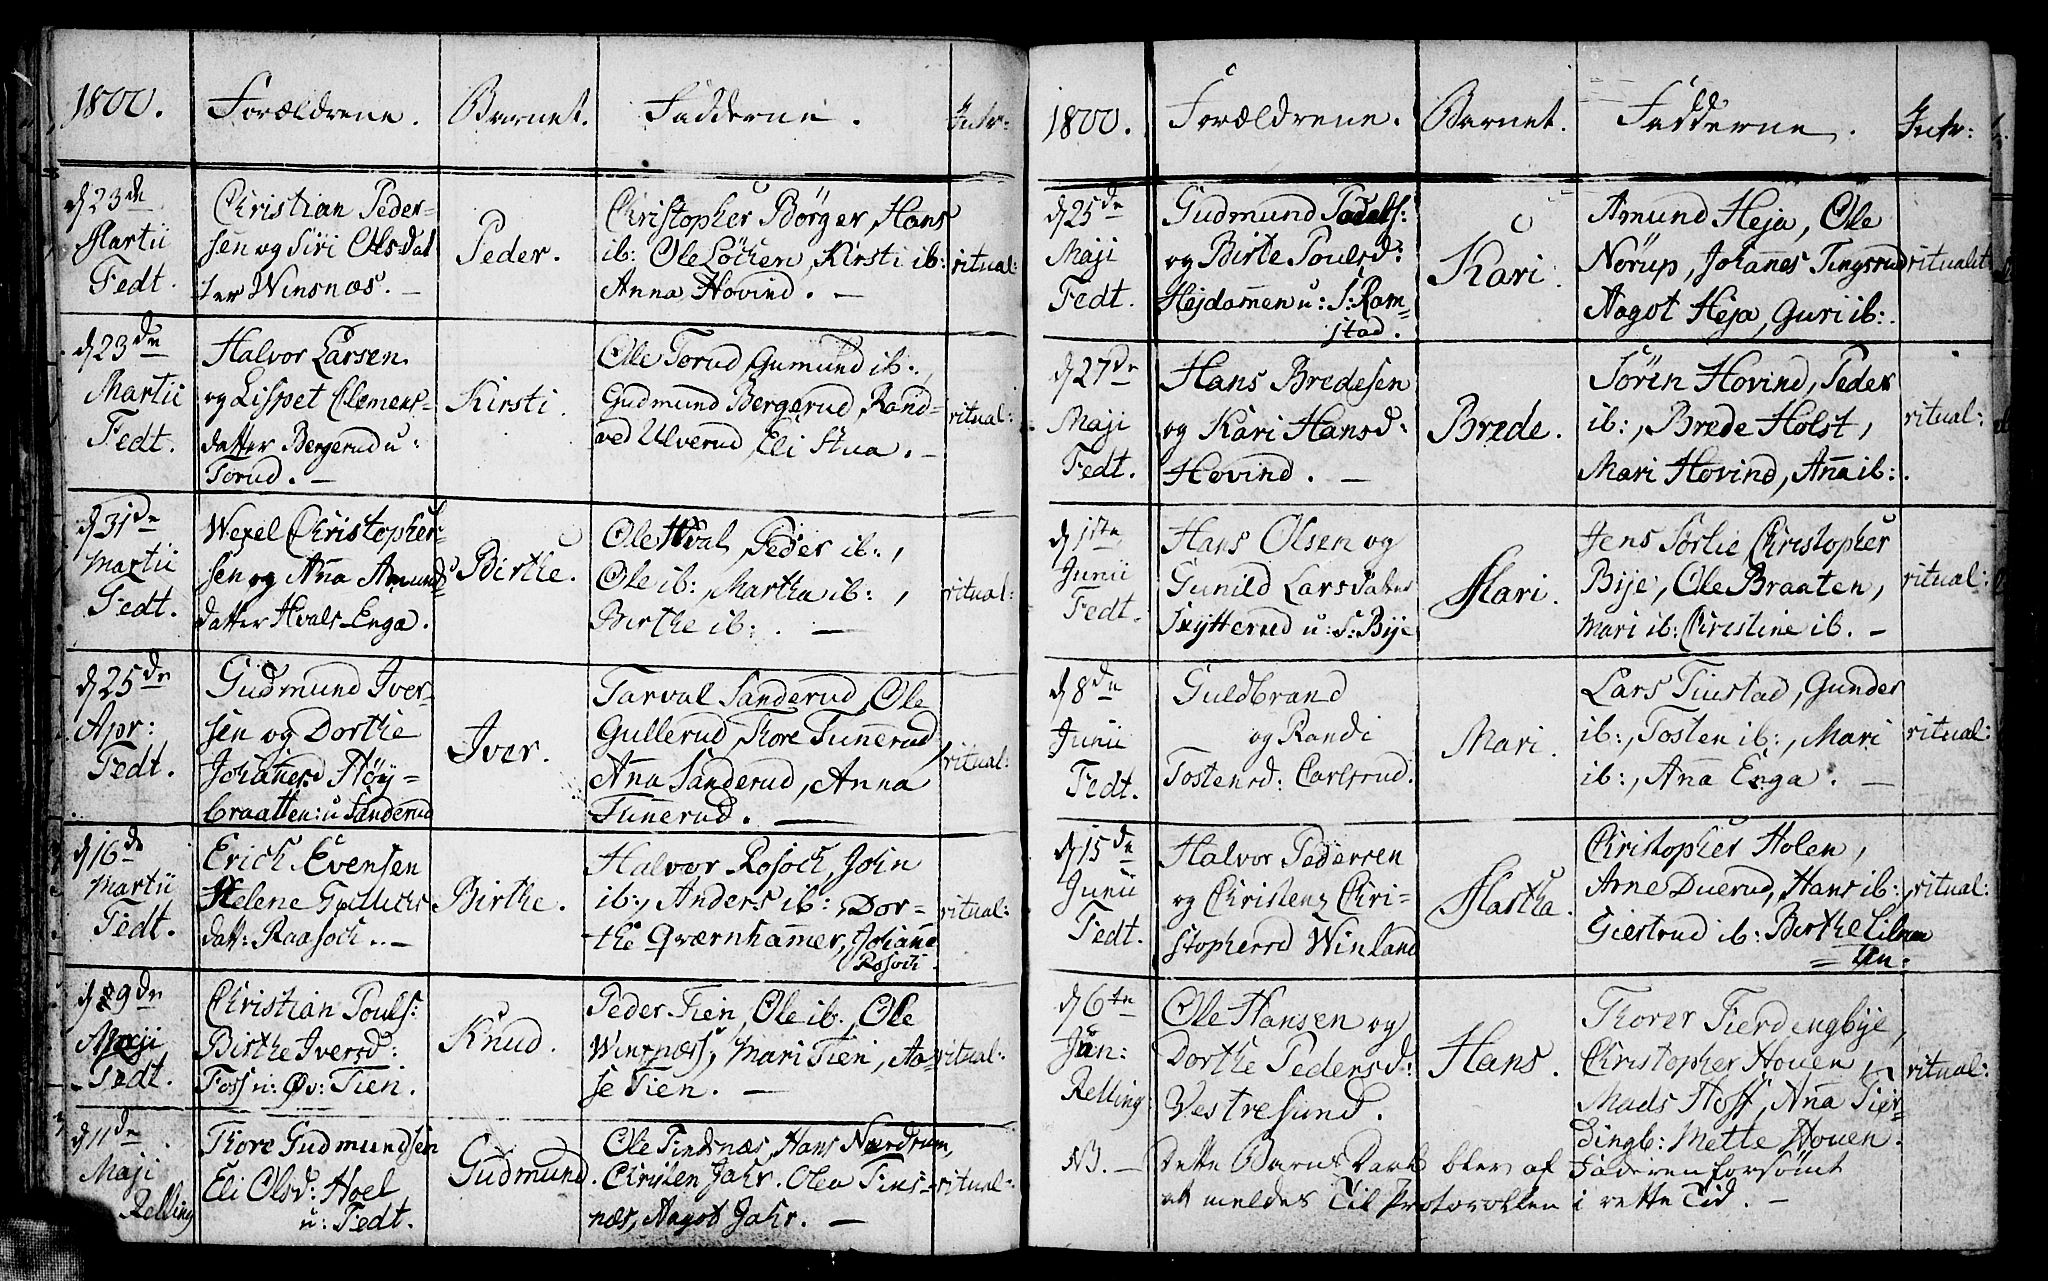 1800. Forældrene. Barnet. Fadderne. Intr:
d 23de Martii Fedt.
Christian Peder-
sen og Siri Olsdat
ter Winsnæs. —
Peder.
Christopher Börger, Hans
ib: Ole Löken, Kirsti ib:
Anna Hovind. —
ritual:
d 23de Martii Fedt.
Halvor Larsen
og Lispet Clemens-
datter Bergerud u:
Torud. —
Kirsti.
Ole Torud, Gumund ib:,
Gudmund Bergerud, Rand-
ved Ulverud, Eli Stua. —
ritual:
d 31de Martii Fedt.
Wexel Christopher-
sen og Anna Amunds
datter Hvals-Enga.
Birthe.
Ole Hval, Peder ib:,
Ole ib:, Martha ib:,
Birthe ib: —
ritual:
d 25de Apr: Fedt.
Gudmund Iver-
sen og Dorthe
Johannesd Höy-
braatten: u Sanderud
Iver.
Tarval Sanderud, Ole
Gullerud, Thore Tunerud,
Anna Sanderud, Anna
Tunerud. —
ritual:
d 16de Martii Fedt.
Erich Evensen
Helene
datt: Raasoch. —
Birthe.
Halvor Rosoch, John
ib:, Anders ib: Dor-
the Qværnhammer, Johanne
Rosoch.
ritual:
d 29de Fedt.
Christian Pouls:
Birthe Iversd:
Foss u: Öv: Tien.
Knud.
Peder Tien, Ole ib:, Ole
Winsnæss, Mari Tien, Aa-
se Tien. —
ritual:
d 11de Maji Relling
Thore Gudmundsen
Eli Olsd: Hoel
u: Fedt.
Gudmund.
Ole Tindsnæs, Hans Nordrum,
Christen Jahr. Olea Tins-
næs, Aagot Jahr. —
ritual:
1800. Forældrene. Barnet. Fadderne. Intr:
d 25de Maji Fedt.
Gudmund Poals:
og Birte Poulsd:
Hejdammen u: S: Ram-
stad.
Kari.
Amund Heja, Ole
Nörup, Johannes Tingsrud
Aagot Heja, Guri ib:.
ritualit:
d 27de Maji Fedt.
Hans Bredesen
og Kari Hansd:
Hovind. —
Brede.
Sören Hovind, Peder
ib:, Brede Holst,
Mari Hovind, Anna ib:.
ritual:
d 1ste Junii Fedt.
Hans Olsen og
Gunild Larsdatter
Skytterud u: S: Bije
Mari.
Jens Sörlie Christopher
Bije, Ole Braaten,
Mari ib: Christine ib. —
ritual:
d 8de Junii Fedt.
Guldbrand
og Randi
Tostensd: Carlsrud.
Mari.
Lars Tiustad, Gunder
ib:, Tosten ib:, Mari
ib:, Anna Enga. —
ritual:
d 15de Junii Fedt.
Halvor Pedersen
og Christenz Chri-
stophersd Winland
Martha.
Christopher Holen,
Arne Duerud, Hans ib:,
Giestrud ib: Birthe
ritual:
d 6te Jan: Relling:
Ole Hansen og
Dorthe Pedersd:
Vestresund.
Hans.
Thorer Fierdingbije,
Christopher Houen,
Mads Hoff, Anna Fier-
dingb: Mette Houen.
ritual:
NB. — Dette Barns Daab blev af Faderen forsömt
at meldes Til Protocollen i rette Tid. —